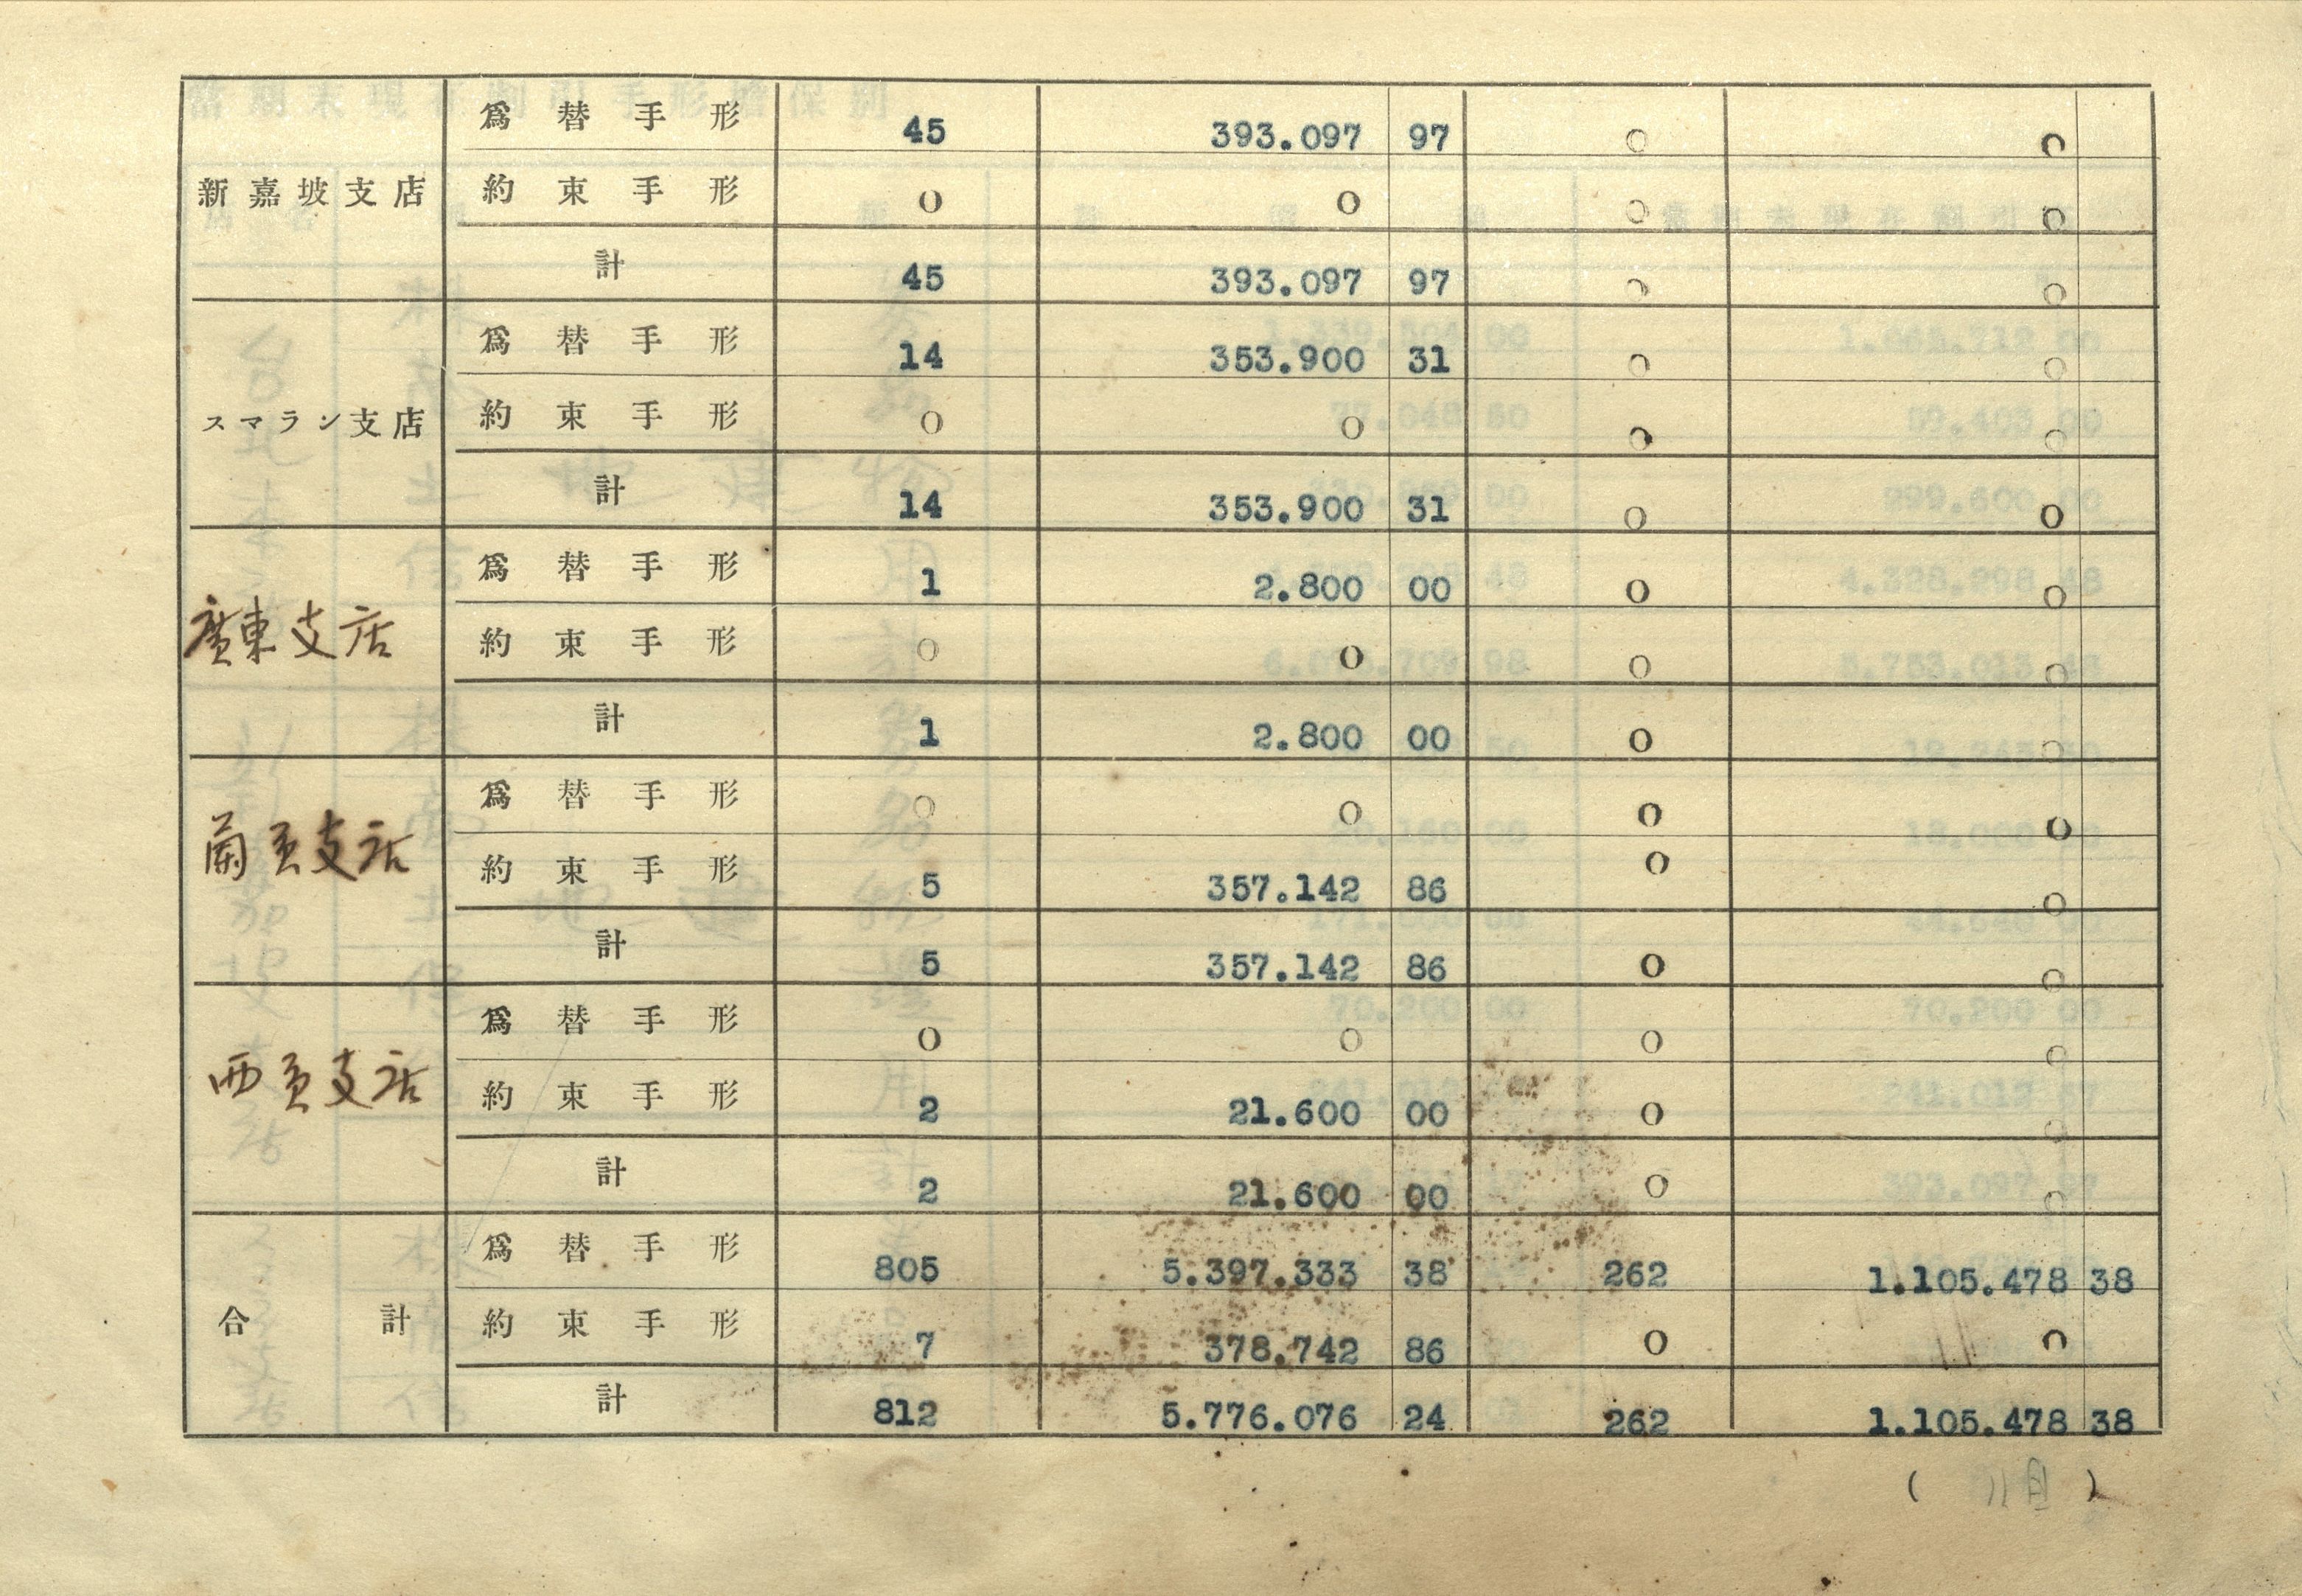 爲替手形 45 393.097 97 0 0
新嘉坡支店 約束手形 0 0 0 0
計 45 393.097 97 0 0
爲替手形 14 353.900 31 0 0
スマラン支店 約束手形 0 0 0 0
計 14 353.900 31 0 0
爲替手形 1 2.800 00 0 0
廣東支店 約束手形 0 0 0 0
計 1 2.800 00 0 0
爲替手形 0 0 0 0
支店 約束手形 5 357.142 86 0 0
計 5 357.142 86 0 0
爲替手形 0 0 0 0
西貢支店 約束手形 2 21.600 00 0 0
計 2 21.600 00 0 0
爲替手形 805 5.397.333 38 262 1.105.478 38
合計 約束手形 7 378.742 86 0 0
計 812 5.776.076 24 262 1.105.478 38